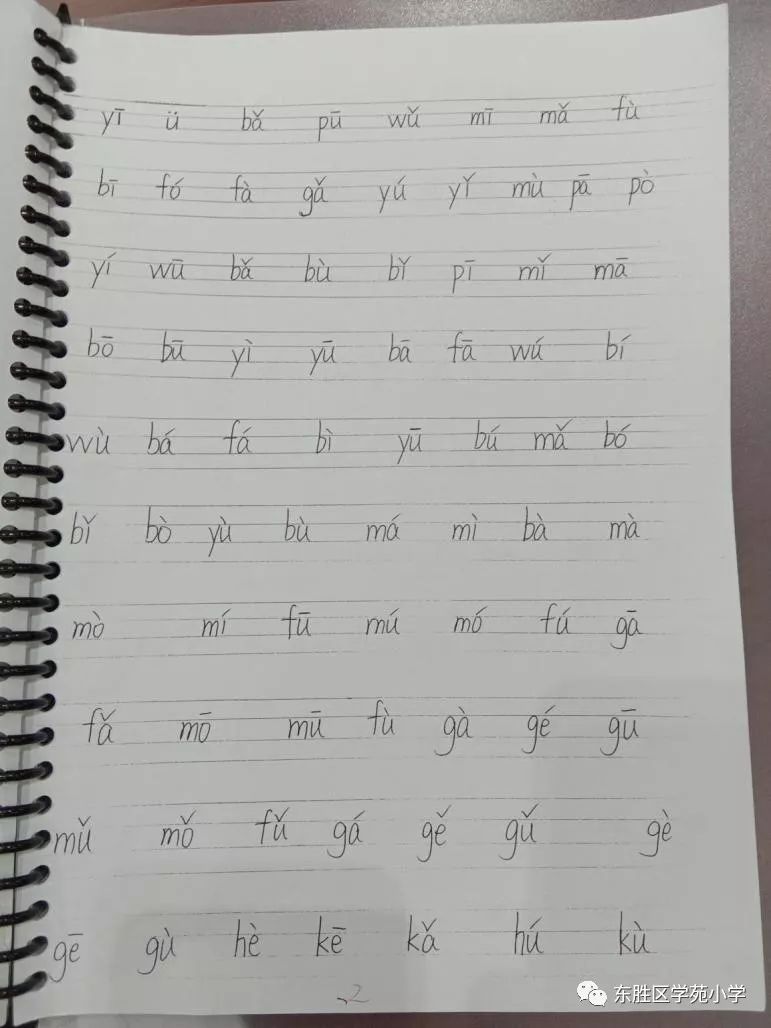 yī ü bǎ pū wǔ mī mǎ fù
bī fó fà gǎ yú yǐ mù pā pò
yí wū bǎ bù bǐ pī mǐ mā
bō bū yì yū bā fā wú bí
wù bá fá bì yū bú mǎ bó
bǐ bò yù bù má mì bà mà
mò mí fū mú mó fú gā
fǎ mō mū fù gà gé gū
mǔ mǒ fǔ gá gě gǔ gè
gē gù hè kē kǎ hú kù
2
东胜区学苑小学